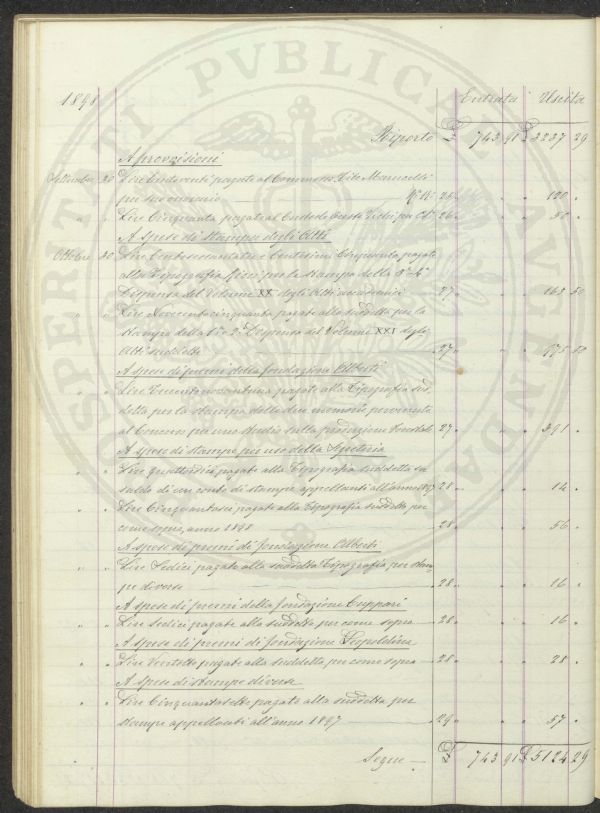 PROSPERITATI PUBLICAE AUGENDAE
1898
Entrata Uscita
Riporto £ 743 91 £ 3237 29
A provvisioni
Settembre 30 Lire Centoventi pagate al Commesso Vito Mannelli
per suo onorario 26 " " 120 "
" " Lire Cinquanta pagate al Custode 26 " " 50 "
A spese di stampa degli Atti
Ottobre 30 Lire e Centesimi Cinquanta pagate
alla Tipografia Ricci per la stampa della 3ª e 4ª
Dispensa del Volume XX degli Atti accademici 27 " " 163 50
" " Lire pagate alla suddetta per la
stampa della 1ª e 2ª Dispensa del Volume XXI degli
Atti suddetti 27 " " 975 50
A spese di premi della fondazione Alberti
" " Lire Trecentonovantuna pagate alla Tipografia sud-
detta per la stampa delle due memorie
al Concorso per uno studio sulla produzione 27 " " 391 "
A spese di stampe per uso della Segreteria
" " Lire quattordici pagate alla Tipografia suddetta a
saldo di un conto di stampe appellanti all'anno 1897 28 " " 14 "
" " Lire Cinquantasei pagate alla Tipografia suddetta per
come sopra, anno 1898 28 " " 56 "
A spese di premi di fondazione Alberti
" " Lire Sedici pagate alla suddetta Tipografia per stam-
pe diverse 28 " " 16 "
A spese di premi della fondazione Cuppari
" " Lire Sedici pagate alla suddetta per come sopra 28 " " 16 "
A spese di premi di fondazione Leopoldina
" " Lire Ventotto pagate alla suddetta per come sopra 28 " " 28 "
A spese di stampe diverse
" " Lire Cinquantasette pagate alla suddetta per
stampe appellanti all'anno 1897 29 " " 57 "
Segue £ 743 91 £ 5124 29